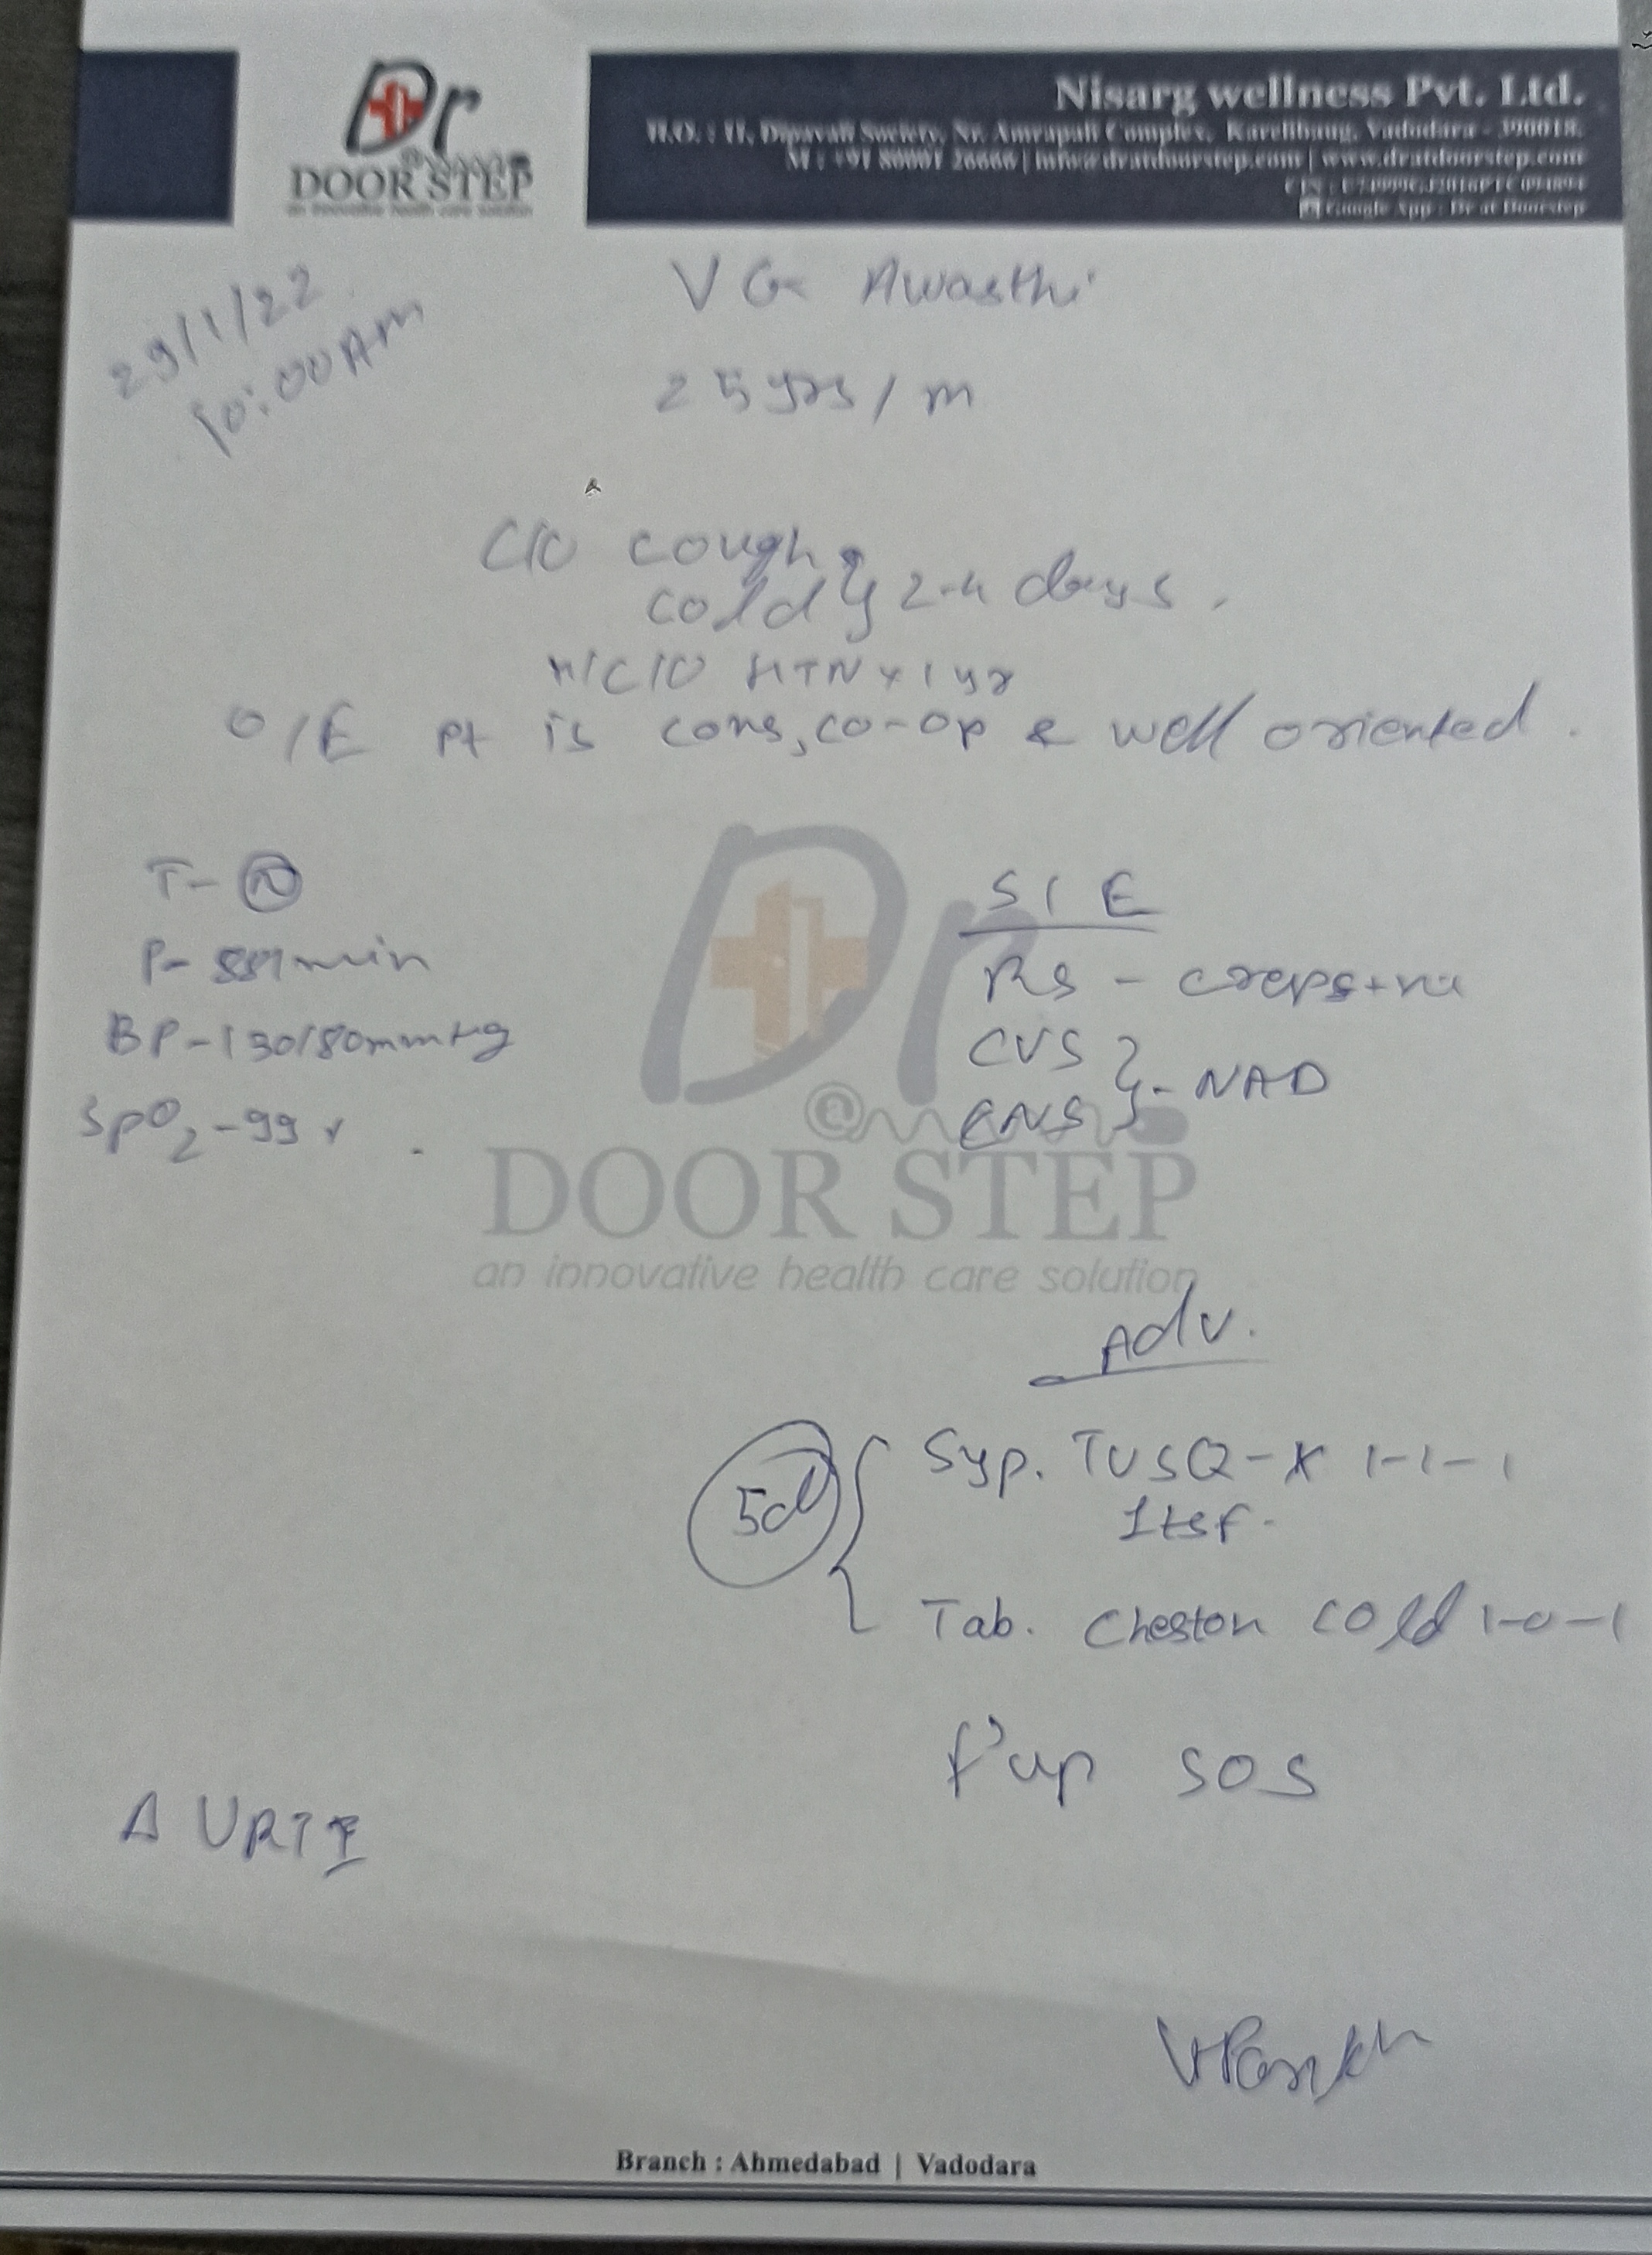 Dr
@
DOOR STEP
an innovative health care solution
Nisarg wellness Pvt. Ltd.
H.O. : 11, Dipavali Society, Nr. Amrapali Complex, Karelibaug, Vadodara - 390018.
M : +91 80001 26666 | info@dratdoorstep.com | www.dratdoorstep.com
Google App : Dr at Doorstep
29/1/22
10:00 AM
V G Awasthi
25 yrs / m
C/O cough
cold } 2-4 days.
K/C/O HTN x 1 yr
O/E pt is cons, co-op & well oriented.
T - N
P - 88/min
BP - 130/80mmHg
SpO2 - 99
S/E
RS - creps +
CVS
CNS } - NAD
Dr
@
DOOR STEP
an innovative health care solution
Adv.
5d { Syp. TUSQ-X 1-1-1
1tsf.
Tab. Cheston cold 1-0-1
f'up SOS
Δ URTI
Branch : Ahmedabad | Vadodara